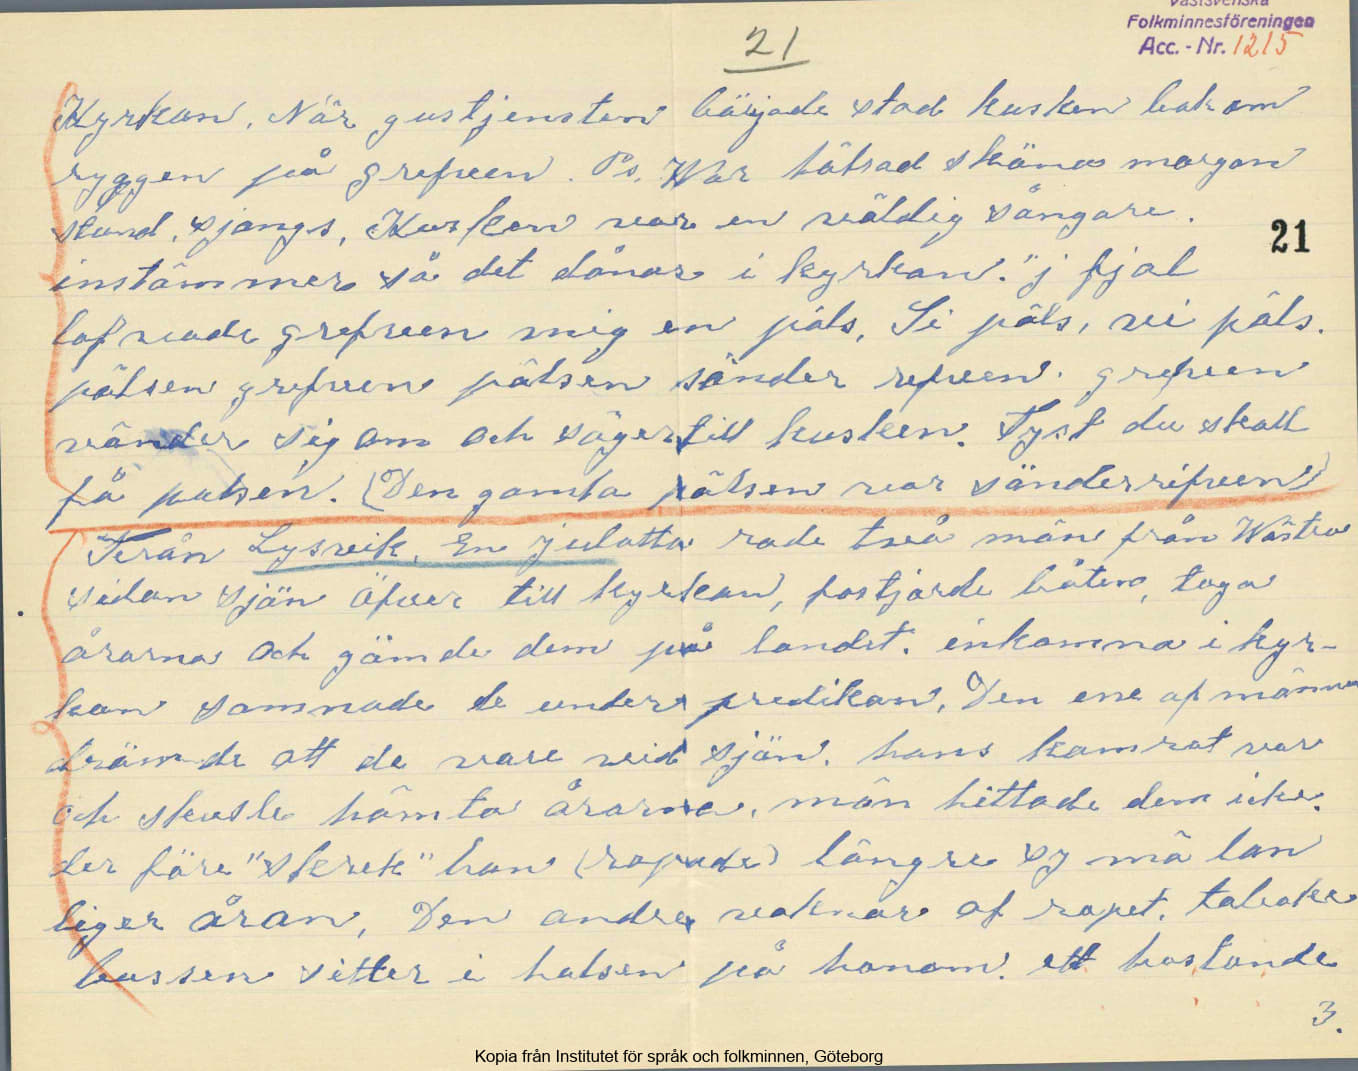 Västsvenska
Folkminnesföreningen
Acc. - Nr. 1215
21
Kyrkan, När gustjensten bärjade stod kusken bakom
ryggen på grefven. Ps. War hälsad sköna morgon
stund, sjöngs, Kusken var en väldig sångare.
21
instämmer så det dånar i kyrkan. "j fjol
lofvade grefven mig en päls, Si päls, vi päls.
pälsen grefven pälsen sönder refven. grefven
vänder sig om och säger till kusken. Tyst du skall
få pälsen. (Den gamla pälsen var sönderrifven)
Från Lysvik. En julotta rode två män från Wästra
sidan sjön öfver till kyrkan, fostjorde båten, toga
årarna och gömde dem på landet. inkomna i kyr-
kan somnade de under predikan, Den ene af männen
drömde att de vare vid sjön. hans kamrat var
och skulle hämta årarna. män hittade dem icke.
der före "skrek" han (ropade) längre sy må lan
liger åran, Den andre vaknar af ropet. tobaks
bussen sitter i halsen på honom. ett hostande
3.
Kopia från Institutet för språk och folkminnen, Göteborg